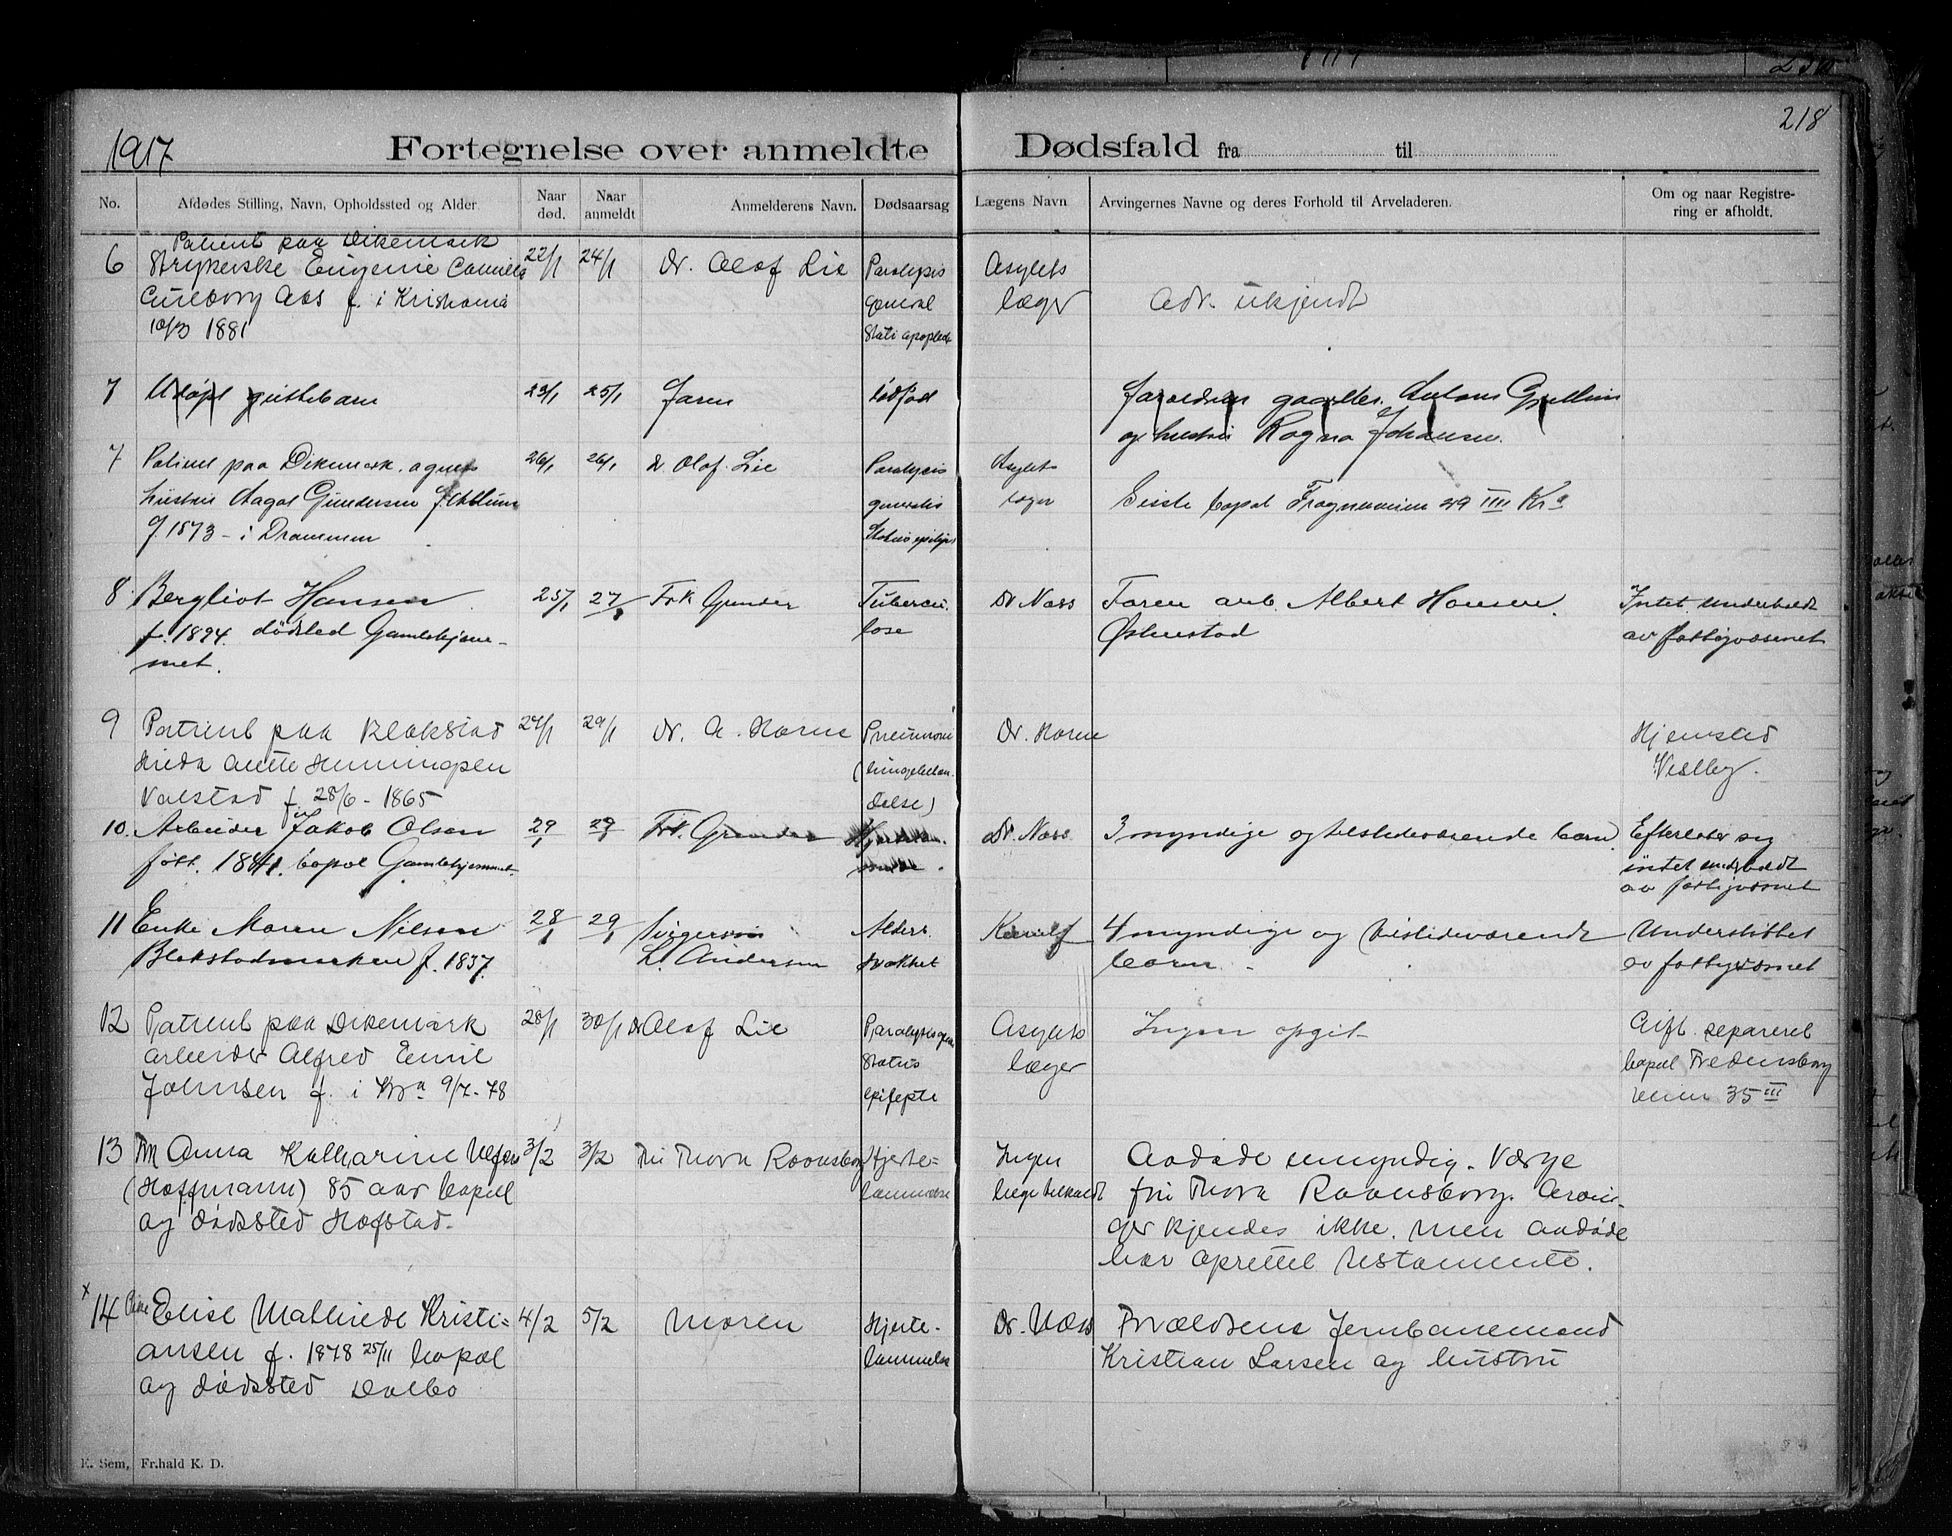 1917
Fortegnelse over anmeldte Dødsfald fra til
218
No. Afdødes Stilling, Navn, Opholdssted og Alder. Naar død. Naar anmeldt Anmelderens Navn. Dødsaarsag Lægens Navn Arvingernes Navne og deres Forhold til Arveladeren. Om og naar Registrering er afholdt.
Patient paa Dikemark
6 Strykerske Eugenie Camilla 22/1 24/1 Dr. Olof Lie Paralysis Asylets
Aas f. i Kristiania general læger Adr. ukjendt
10/3 1881 Stati
7 Udøpt guttebarn 23/1 25/1 Faren Forældrene gaardbr.
og hustru Ragna Johansen.
7 Patient paa Dikemark. 26/1 26/1 Dr Olof Lie Paralysis Asylets
hustru Aagot Gundersen generalis læger Sidste bopæl 29 III Kra
f. 1873 - i Drammen Status
8 Bergliot Hansen 25/1 27/1 Frk Grender Tubercu- Dr Næss Faren arb. Albert Hansen. Intet underholdt
f. 1894. dødsted Gamlehjem- lose Østenstad av fattigvæsenet
met.
9 Patient paa Blakstad 27/1 29/1 Dr. A. Horne Pneumoni Dr. Horne Hjemsted
Anette Henningsen (lungebetæn- Vestby.
Valstad f. 28/6 - 1865 delse)
10. Arbeider Jakob Olsen 29/1 29/1 Frk. Grender Dr. Næss 3 myndige og tilstedeværende barn. Efterlater sig
født. 1841. bopæl Gamlehjemmet. intet underholdt
av fattigvæsnet
11 Enke Maren Nilsen 28/1 29/1 Svigersøn Alders 4 myndige og tilstedeværende Understøttet
Blakstadmarken f. 1837. L. Andersen svakhet barn. av fattigvæsnet
12 Patient paa Dikemark 28/1 30/1 Dr Olof Lie Paralysis Asylets Ingen opgit Gift. separeret
arbeider Alfred Emil Status læger bopæl Fredensborg
Johnsen f. i Kra 9/7-78 epilepti veien 35 III
13 Anna Katharine 3/2 3/2 Thora Ravnsborg Hjerte- Ingen Avdøde umyndig. Værge
(Hoffmann) 85 aar bopæl lammelse læge tilkaldt fru Thora Ravnsborg. Arvin-
og dødssted Hofstad. ger kjendes ikke, men avdøde
har oprettet testamente.
x 14 Pike Elise Mathilde Kristi- 4/2 5/2 Moren Hjerte- Dr. Næss Forældrene Jernbanemand
ansen f. 1878 25/11 bopæl lammelse Kristian Larsen og hustru
og dødssted Dalbo
E. Sem, Fr.hald K. D.